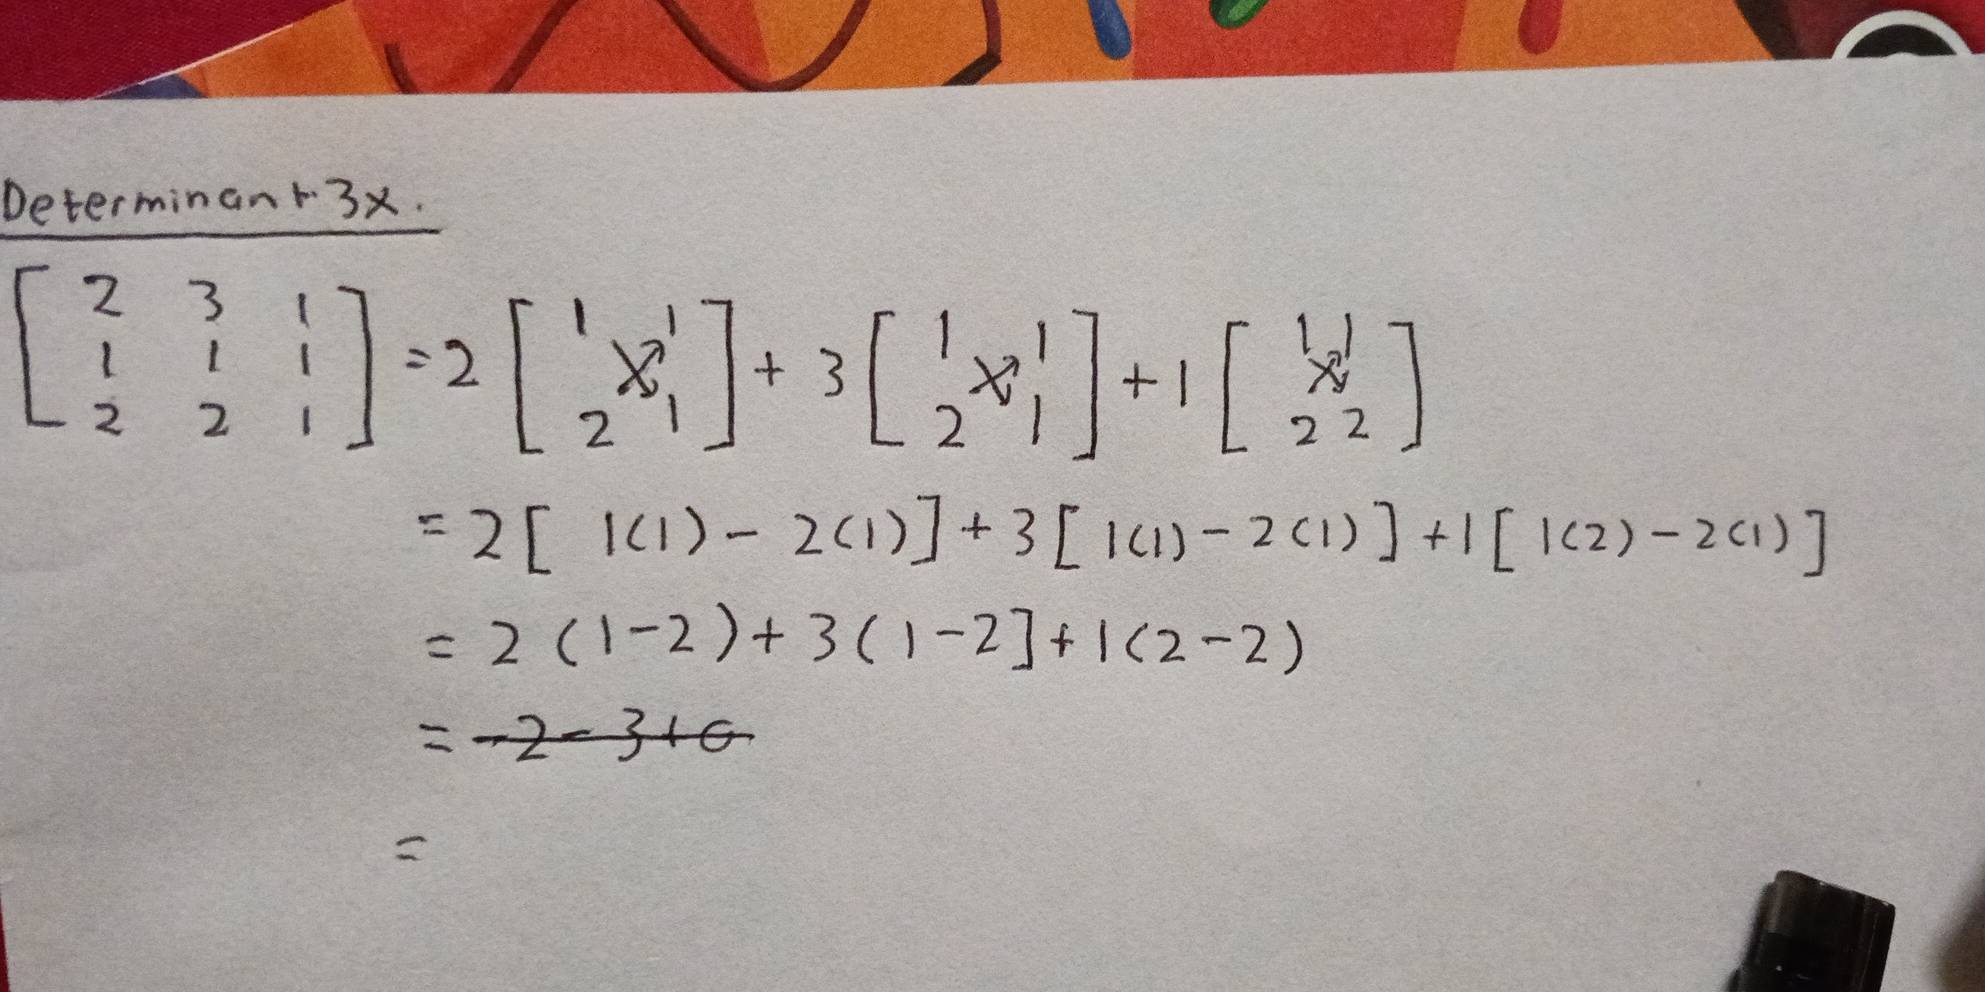 Determinant 3x.
[ 2 3 1
1 1 1
2 2 1 ] = 2 [ 1 1
2 1 ] + 3 [ 1 1
2 1 ] + 1 [ 1 1
2 2 ]
= 2 [ 1(1) - 2(1) ] + 3 [ 1(1) - 2(1) ] + 1 [ 1(2) - 2(1) ]
= 2 (1-2) + 3 (1-2] + 1 (2-2)
= -2 - 3 + 0
=